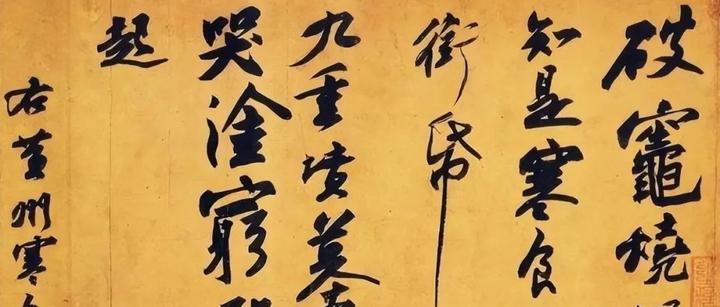 破竈燒
知是寒食
銜帋
九重墳墓
哭塗窮
起
右黃州寒